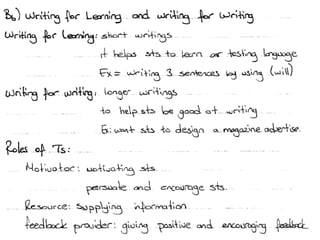 B6) Writing for Learning and writing for Writing
Writing for Learning: short writings
it helps sts to learn or testing language
Ex= writing 3 sentences by using (will)
Writing for writing: longer writings
to help sts be good at writing
Ex: want sts to design a magazine advertise.
Roles of Ts:
Motivator: motivating sts.
persuate and encourage sts.
Resource: Supplying information
feedback provider: giving positive and encouraging feedback